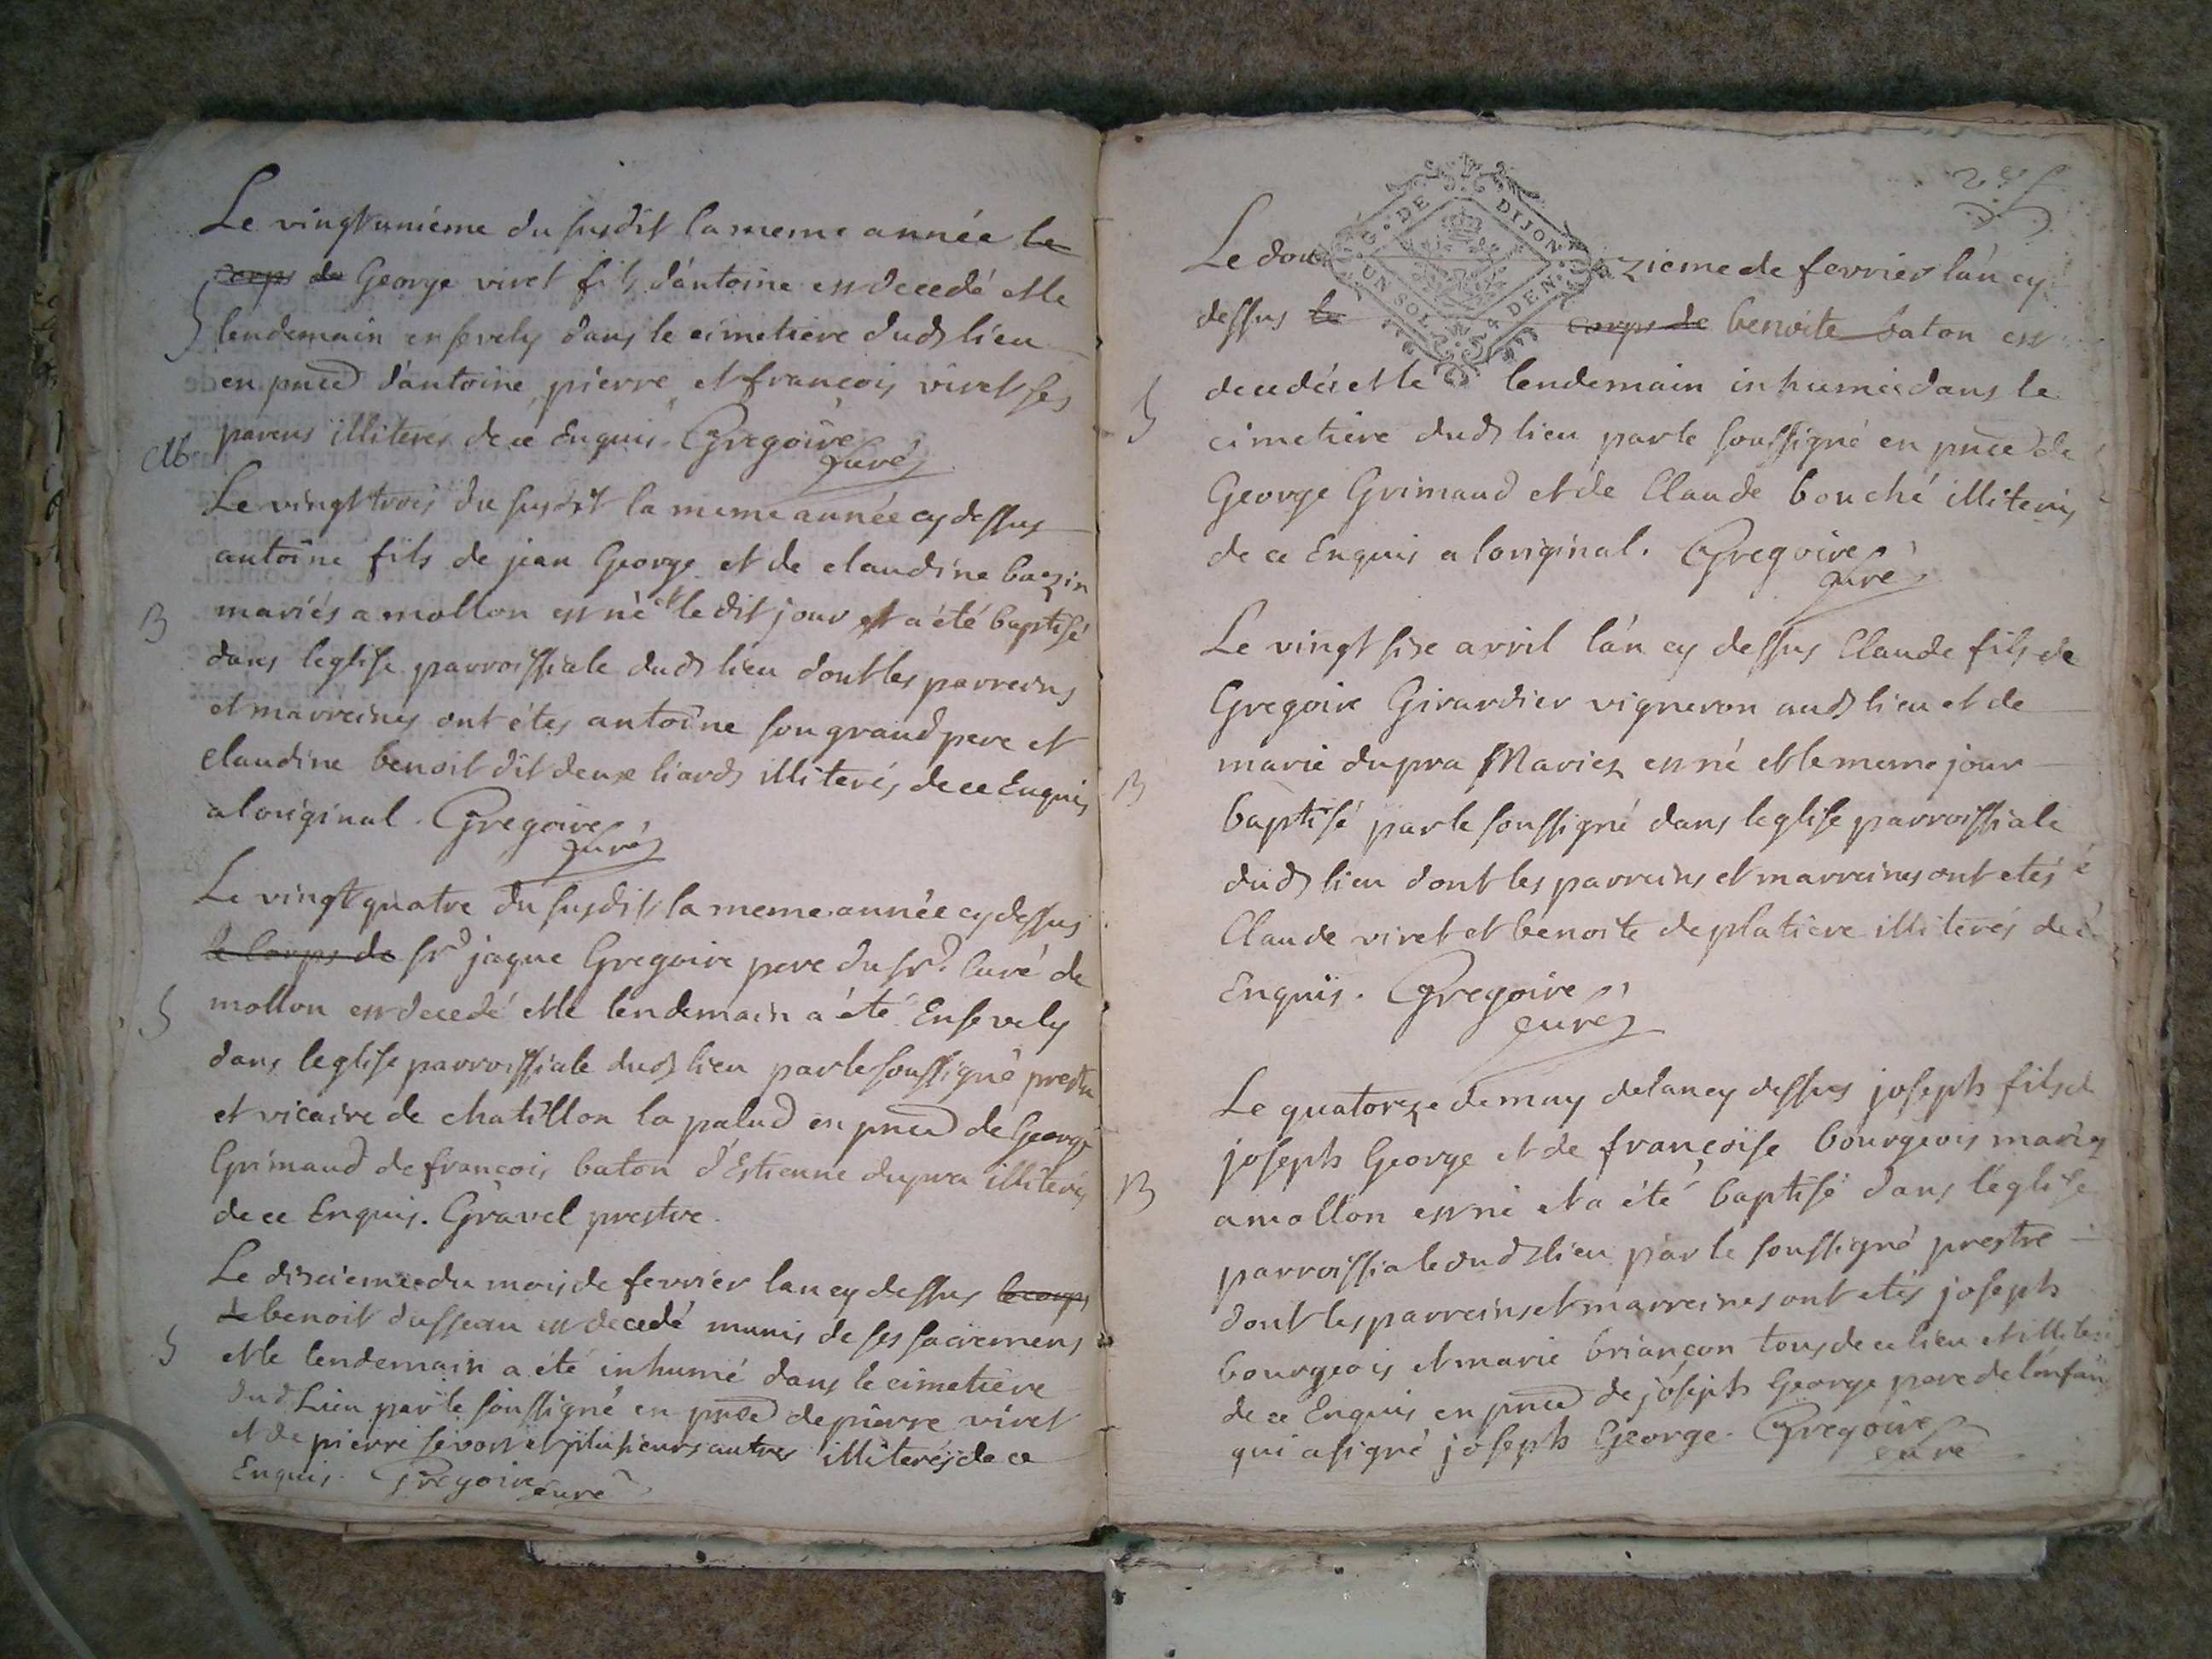 Le vingtunième du susdit la meme année le
corps de George viret fils d'antoine est decedé et le
S lendemain ensevely dans le cimetiere dud lieu
en pnce d'antoine, pierre, et françois viret ses
parens illiterés de ce Enquis Gregoire
curé
Le vingttrois du susdit la meme année cy dessus
antoine fils de jean George et de claudine bazin
B mariés a mollon est né et le dit jour a été baptisé
dans leglise parroissiale dud lieu dont les parreins
et marreines ont étes antoine son grand pere et
claudine benoit dit deux liards illiterés de ce Enquis
a loriginal. Gregoire
curé
Le vingtquatre du susdit la meme année cy dessus
le Corps de sr jaque Gregoire pere du sr. Curé de
S mollon est decedé et le lendemain a été Ensevely
dans leglise parroissiale dud lieu par le soussigné prestre
et vicaire de chatillon la palud en pnce de George
Grimaud de françois baton d'Estienne dupra illiterés
de ce Enquis. Gravel prestre.
Le dixieme du mois de fevrier lan cy dessus le corps
de benoit dusseau est decedé munis de ses sacremens
S et le lendemain a été inhumé dans le cimetiere
dud Lieu par le soussigné en pnce de pierre viret
et de pierre et plusieurs autres illiterés de ce
Enquis. Gregoire curé
G. DE DIJON
UN SOL 4 DEN.
Le dou zieme de fevrier lán cy
dessus le corps de benoite baton est
decedée et le lendemain inhumée dans le
S cimetiere dud lieu par le soussigné en pnce de
George Grimaud et de Claude bouché illiterés
de ce Enquis a loriginal. Gregoire
curé
Le vingt six avril lán cy dessus Claude fils de
Gregoire Girardier vigneron aud lieu et de
marie dupra Mariez est né et le meme jour
B baptisé par le soussigné dans leglise parroissiale
dud lieu dont les parreins et marreines ont etés
Claude viret et benoite deplatiere illiterés de ce
Enquis. Gregoire
curé
Le quatorze de may de lan cy dessus joseph fils de
joseph George et de françoise bourgeois mariez
B a mollon est né et a été baptisé dans l'eglise
parroissiale dud lieu par le soussigné prestre
dont les parreins et marreines ont etés joseph
bourgeois et marie briançon tous de ce lieu et illiterés
de ce Enquis en pnce de joseph George pere de lenfant
qui a signé joseph George. Gregoire
curé